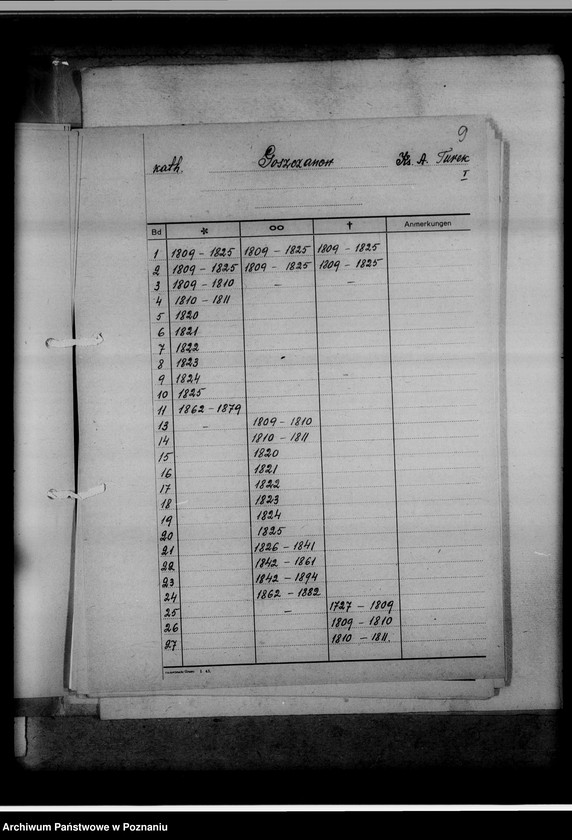 9
kath. Goszczanow Ks. A. Turek
I
Bd * ∞ † Anmerkungen
1 1809 - 1825 1809 - 1825 1809 - 1825
2 1809 - 1825 1809 - 1825 1809 - 1825
3 1809 - 1810 - -
4 1810 - 1811
5 1820
6 1821
7 1822
8 1823
9 1824
10 1825
11 1862 - 1879
13 - 1809 - 1810
14 1810 - 1811
15 1820
16 1821
17 1822
18 1823
19 1824
20 1825
21 1826 - 1841
22 1842 - 1861
23 1842 - 1894
24 1862 - 1882
25 - 1727 - 1809
26 1809 - 1810
27 1810 - 1811.
Archiwum Państwowe w Poznaniu